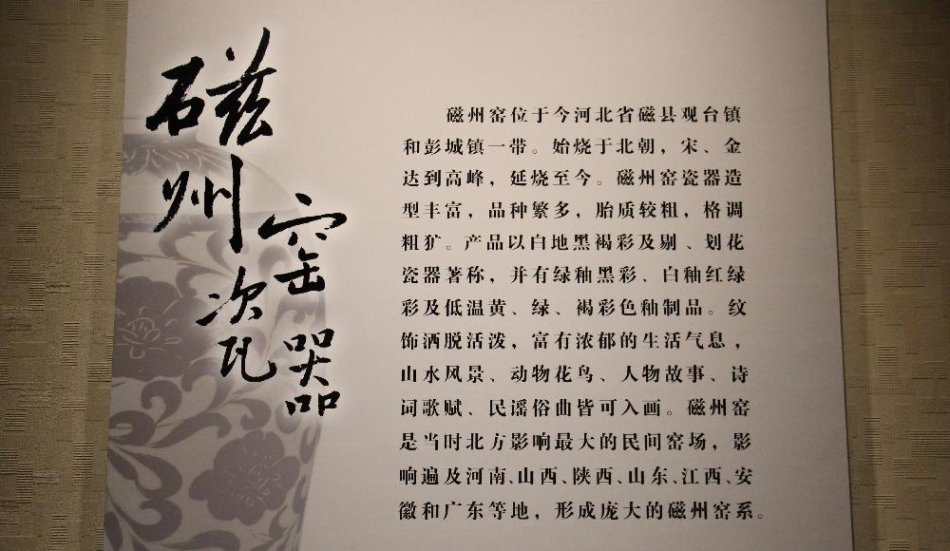 磁州窑瓷器
磁州窑位于今河北省磁县观台镇
和彭城镇一带。始烧于北朝，宋、金
达到高峰，延烧至今。磁州窑瓷器造
型丰富，品种繁多，胎质较粗，格调
粗犷。产品以白地黑褐彩及剔、划花
瓷器著称，并有绿釉黑彩、白釉红绿
彩及低温黄、绿、褐彩色釉制品。纹
饰洒脱活泼，富有浓郁的生活气息，
山水风景、动物花鸟、人物故事、诗
词歌赋、民谣俗曲皆可入画。磁州窑
是当时北方影响最大的民间窑场，影
响遍及河南、山西、陕西、山东、江西、安
徽和广东等地，形成庞大的磁州窑系。